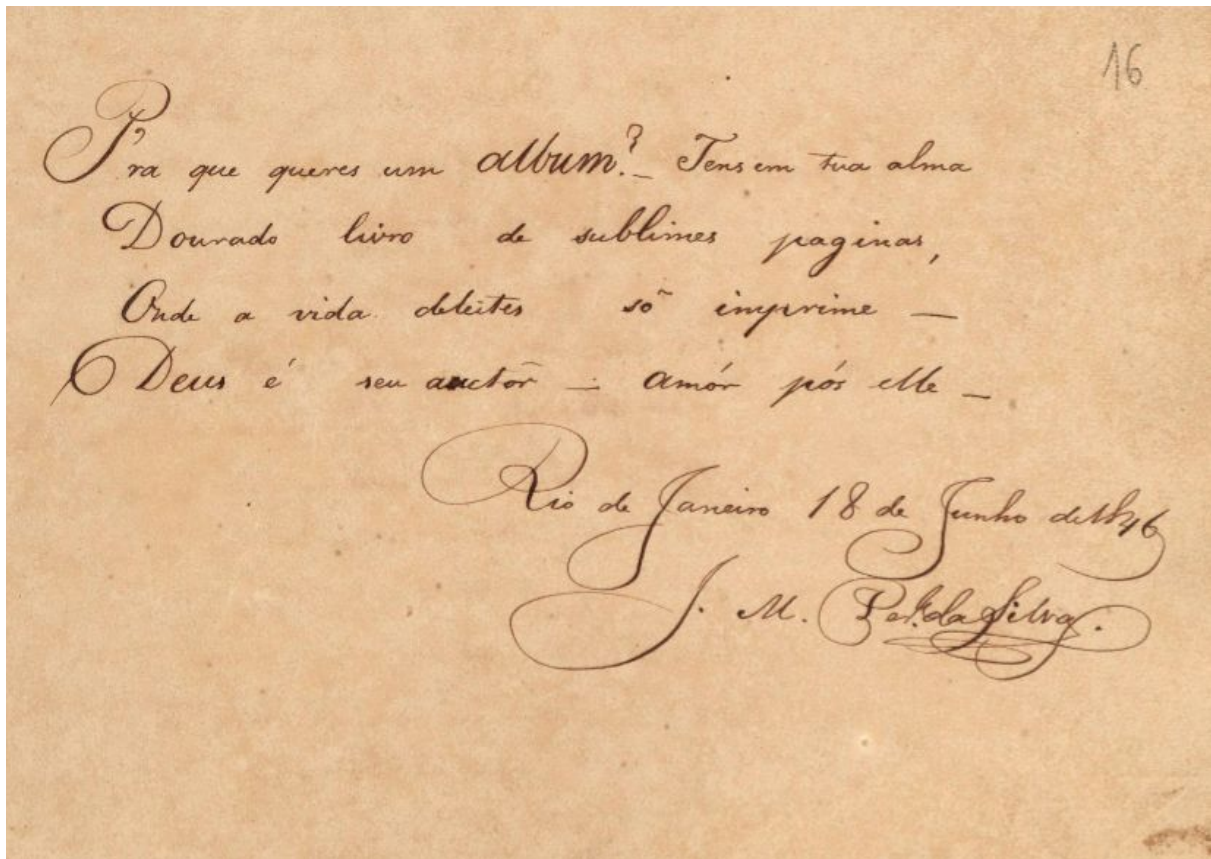 16
P'ra que queres um album? _ Tens em tua alma
Dourado livro de sublimes paginas,
Onde a vida deleites só imprime —
Deus é seu auctôr — amór pós elle —
Rio de Janeiro 18 de Junho de 1846
J. M. Per.ª da Silva.